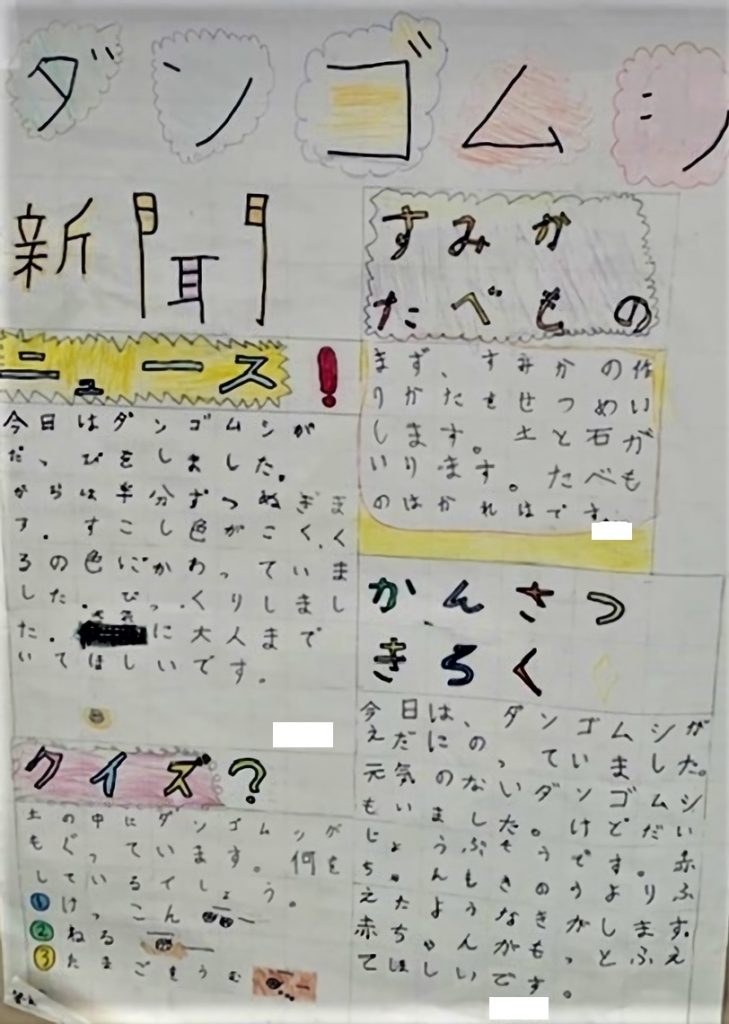 ダンゴムシ
新聞
ニュース!
今日はダンゴムシが
だっぴをしました。
からは半分ずつぬぎま
す。すこし色がこく、く
ろの色にかわっていま
した。びっくりしまし
た。に大人まで
いてほしいです。
クイズ?
土の中にダンゴムシが
もぐっています。何を
しているでしょう。
①けっこん
②ねる
③たまごをうむ
すみか
たべもの
まず、すみかの作
りかたをせつめい
します。土と石が
いります。たべも
のはかれはです。
かんさつ
きろく
今日は、ダンゴムシが
えだにのっていました。
元気のないダンゴムシ
もいました。けどだい
じょうぶそうです。赤
ちゃんもきのうよりふ
えたようなきがします。
赤ちゃんがもっとふえ
てほしいです。